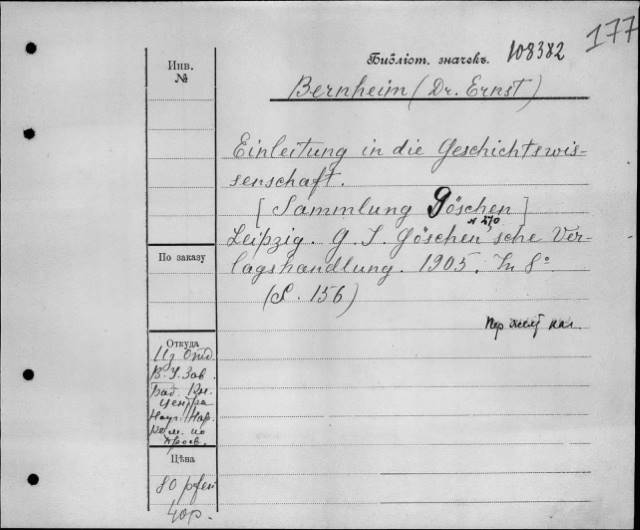 177
Инв.
№
Библіот. значекъ. 108382
Bernheim (Dr. Ernst)
Einleitung in die Geschichtswis-
senschaft.
[Sammlung Göschen]
№ 270
Leipzig. G. J. Göschen'sche Ver-
lagshandlung. 1905. In 8°
(S. 156)
По заказу
Откуда
Из Отд.
В. У. Зав.
Кн.
центра
Нар.
Ком. по
просв.
Цѣна
80 pfen
40р.